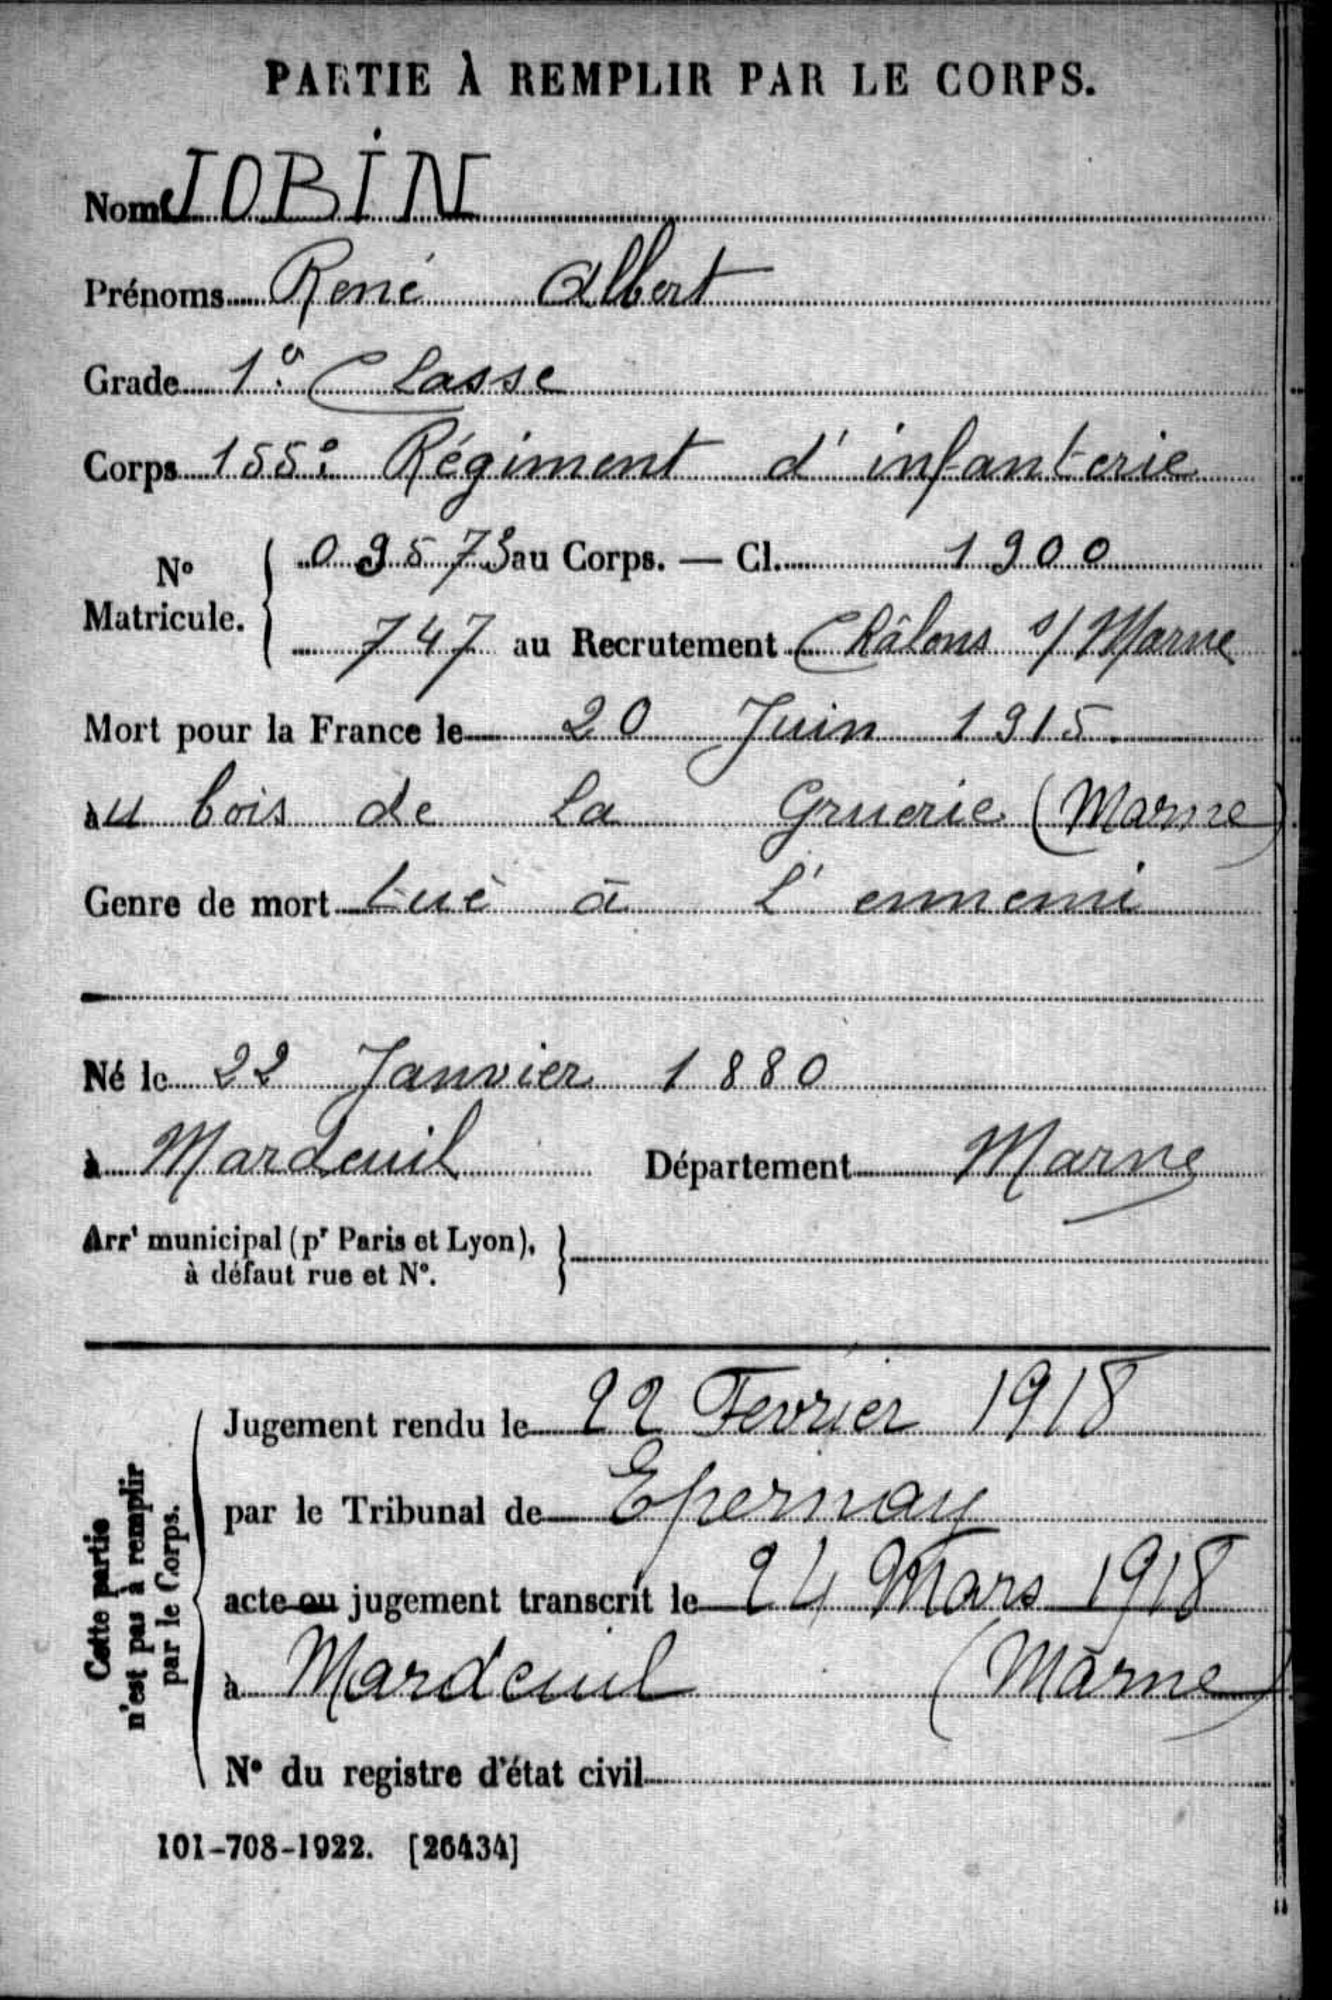 PARTIE À REMPLIR PAR LE CORPS.
Nom JOBIN
Prénoms René Albert
Grade 1e Classe
Corps 155e Régiment d'infanterie
N° Matricule. { 09573 au Corps. — Cl. 1900
747 au Recrutement Châlons s/ Marne
Mort pour la France le 20 Juin 1915.
au bois de la Gruerie (Marne)
Genre de mort tué à l'ennemi
Né le 22 Janvier 1880
à Mardeuil Département Marne
Arrt municipal (pr Paris et Lyon),
à défaut rue et N°.
Cette partie
n'est pas à remplir
par le Corps.
Jugement rendu le 22 Fevrier 1918
par le Tribunal de Epernay
acte ou jugement transcrit le 24 Mars 1918
à Mardeuil (Marne)
N° du registre d'état civil
101-708-1922. [26434]